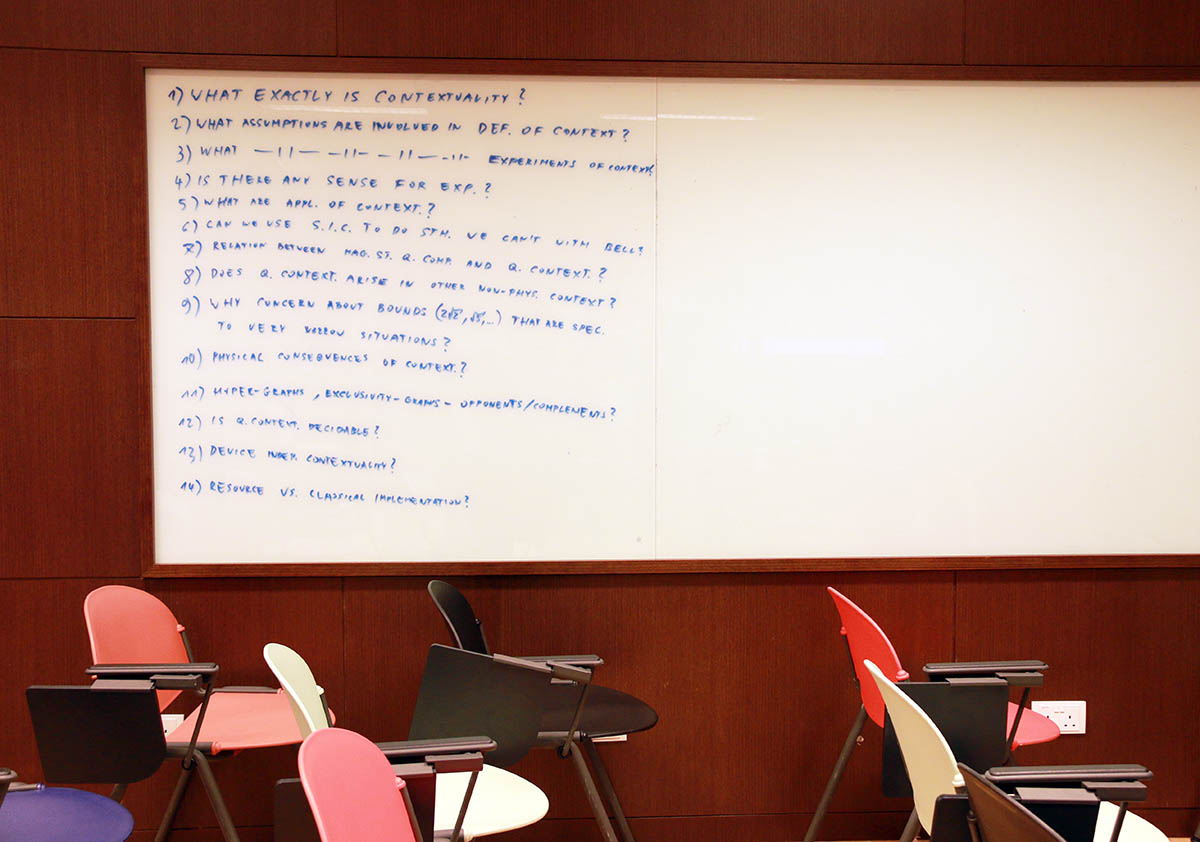 1) WHAT EXACTLY IS CONTEXTUALITY?
2) WHAT ASSUMPTIONS ARE INVOLVED IN DEF. OF CONTEXT?
3) WHAT —11— —11— —11— -11- EXPERIMENTS OF CONTEXT?
4) IS THERE ANY SENSE FOR EXP.?
5) WHAT ARE APPL. OF CONTEXT.?
6) CAN WE USE S.I.C. TO DO STH. WE CAN'T WITH BELL?
7) RELATION BETWEEN MAG. ST. Q. COMP. AND Q. CONTEXT.?
8) DOES Q. CONTEXT. ARISE IN OTHER NON-PHYS. CONTEXT?
9) WHY CONCERN ABOUT BOUNDS (2√2, √5, ...) THAT ARE SPEC.
TO VERY NARROW SITUATIONS?
10) PHYSICAL CONSEQUENCES OF CONTEXT.?
11) HYPER-GRAPHS, EXCLUSIVITY-GRAPHS - OPPONENTS/COMPLEMENTS?
12) IS Q. CONTEXT. DECIDABLE?
13) DEVICE INDEP. CONTEXTUALITY?
14) RESOURCE VS. CLASSICAL IMPLEMENTATION?